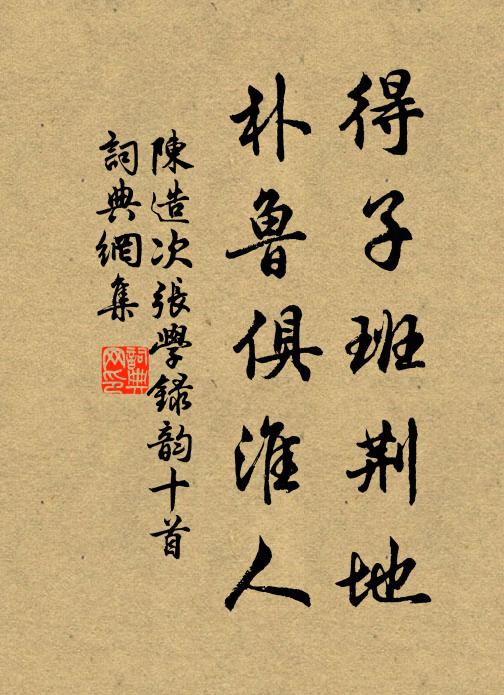 得子班荆地
朴魯俱淮人
陳造次張學録韵十首
詞典網集
詞典网印